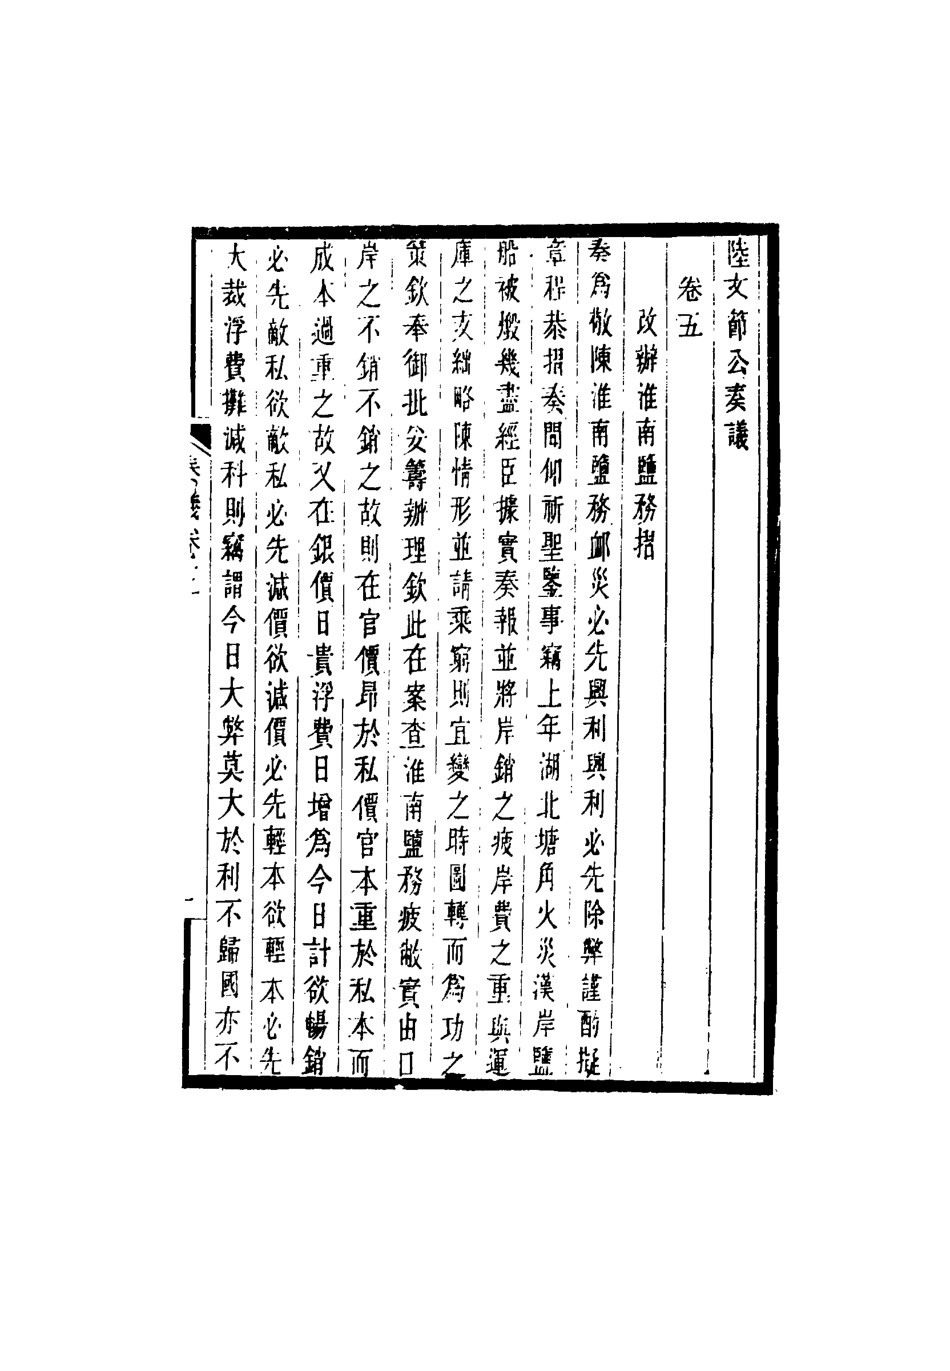 陸文節公奏議
卷五
改辦淮南鹽務摺
奏爲敬陳淮南鹽務卹災必先興利興利必先除弊謹酌擬
章程恭摺奏聞仰祈聖鑒事竊上年湖北塘角火災漢岸鹽
船被燬幾盡經臣據實奏報並將岸銷之疲岸費之重與運
庫之支絀略陳情形並請乘窮則宜變之時圖轉而爲功之
策欽奉御批妥籌辦理欽此在案查淮南鹽務疲敝實由口
岸之不銷不銷之故則在官價昂於私價官本重於私本而
成本過重之故又在銀價日貴浮費日增爲今日計欲暢銷
必先敵私欲敵私必先減價欲減價必先輕本欲輕本必先
大裁浮費攤減科則竊謂今日大弊莫大於利不歸國亦不
奏議卷
一